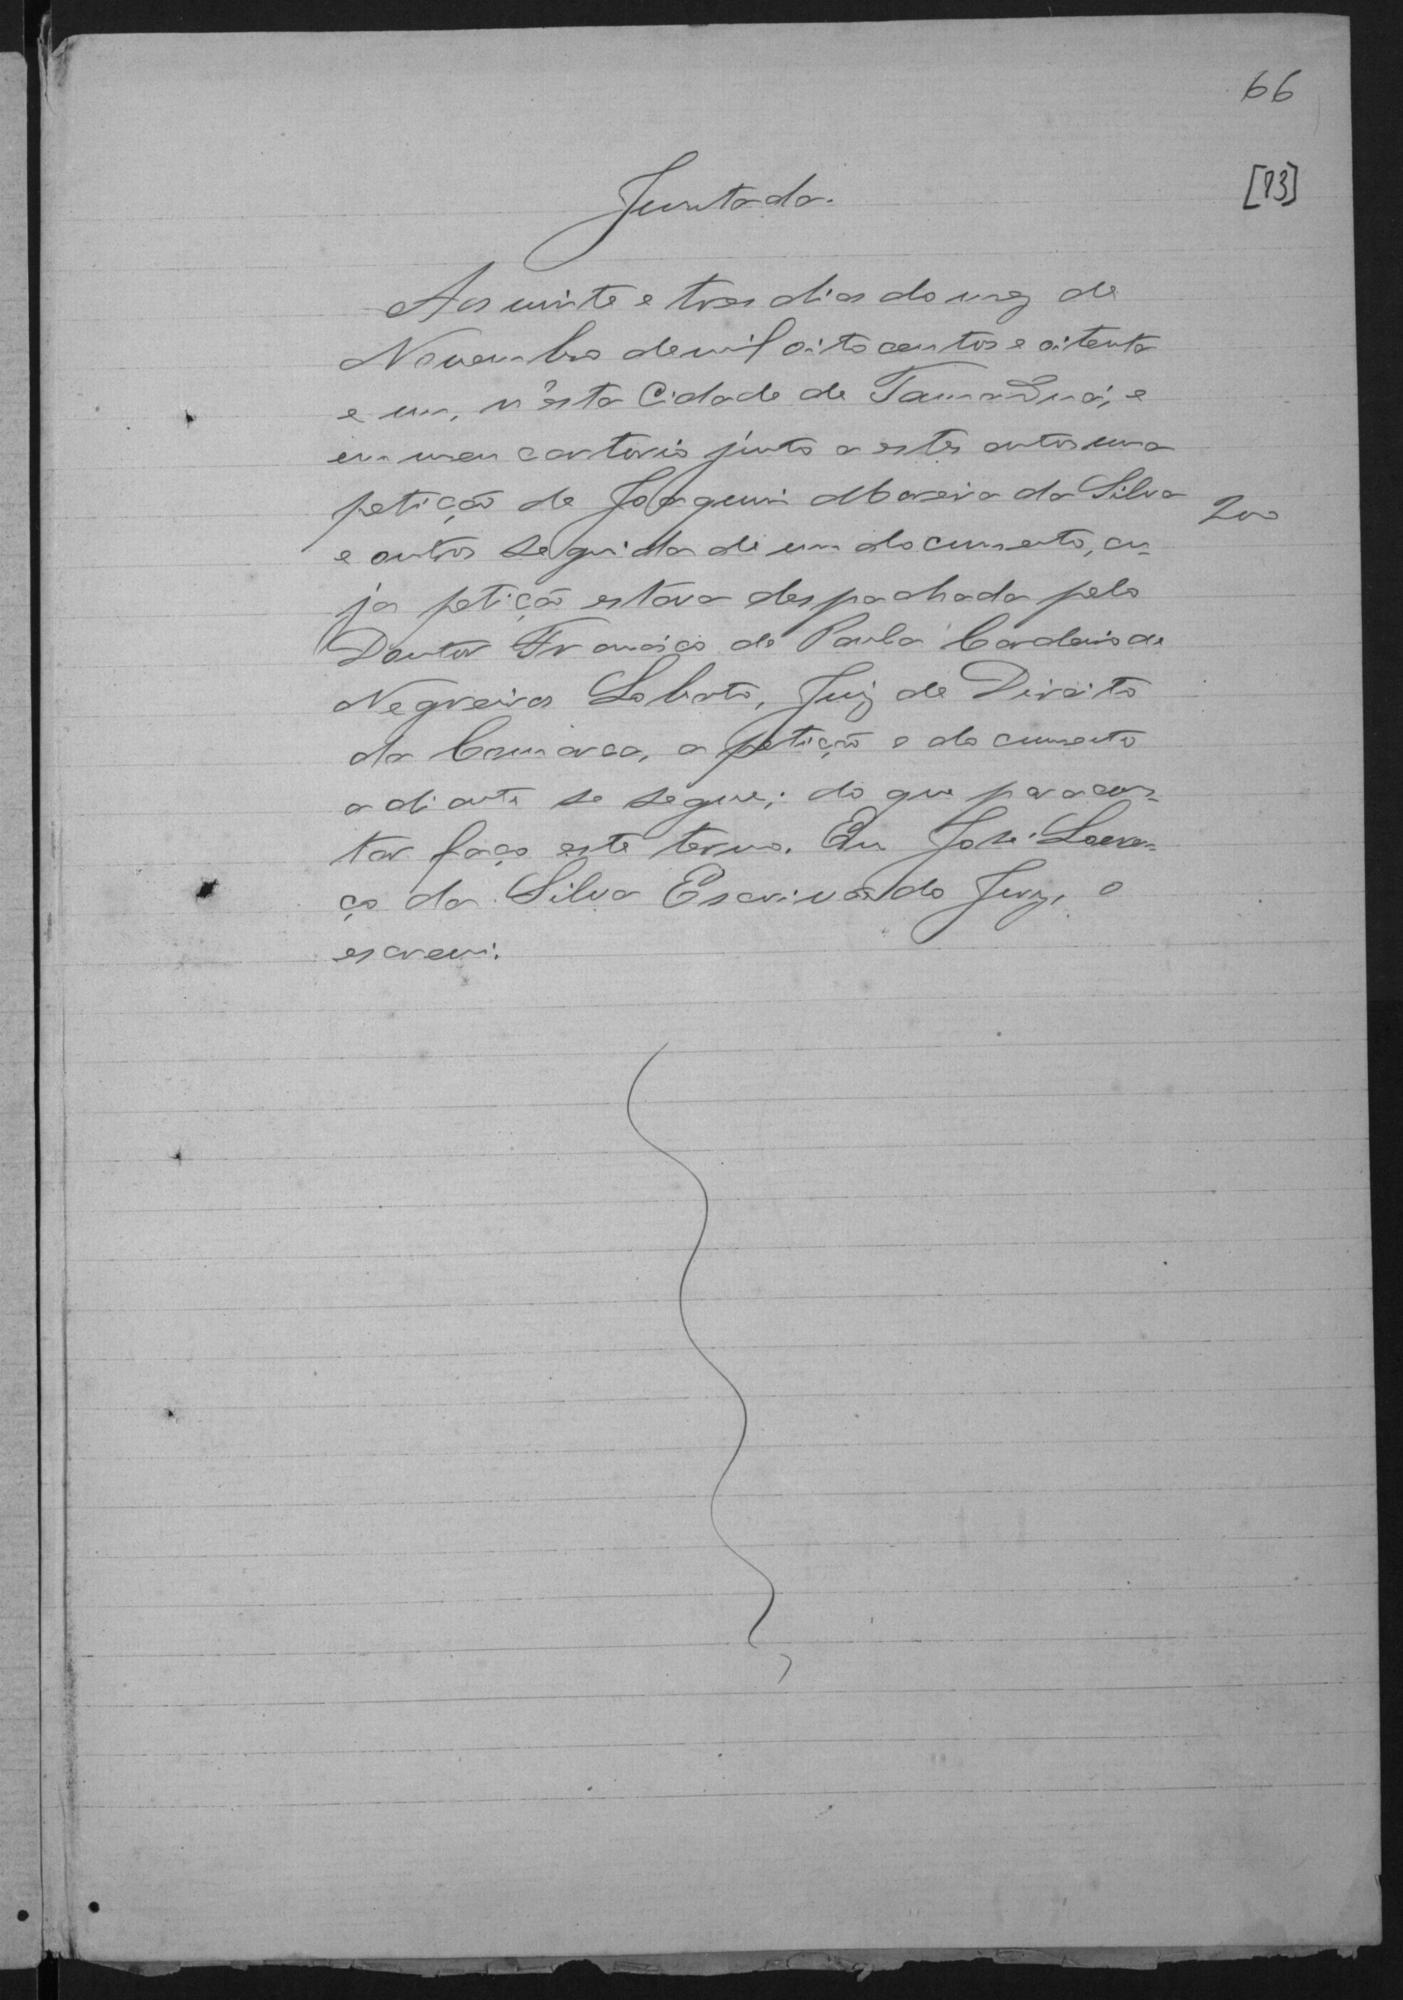 66
[73]
Juntada.
Aos vinte e tres dias do mez de
Novembro de mil oito centos e oitenta
e um, n'esta Cidade de Tamanduá, e
em meu cartorio junto a estes autos uma
petição de Joaquim Moreira da Silva
200
e outros seguida de um documento, cu-
ja petição estava despachada pelo
Doutor Francisco de Paula Cordeiro de
Negreiros Lobato, Juiz de Direito
da Comarca, a petição e documento
adiante se segue; do que para cons-
tar faço este termo. Eu José Louren-
ço da Silva Escrivão do Jury, o
escrevi.